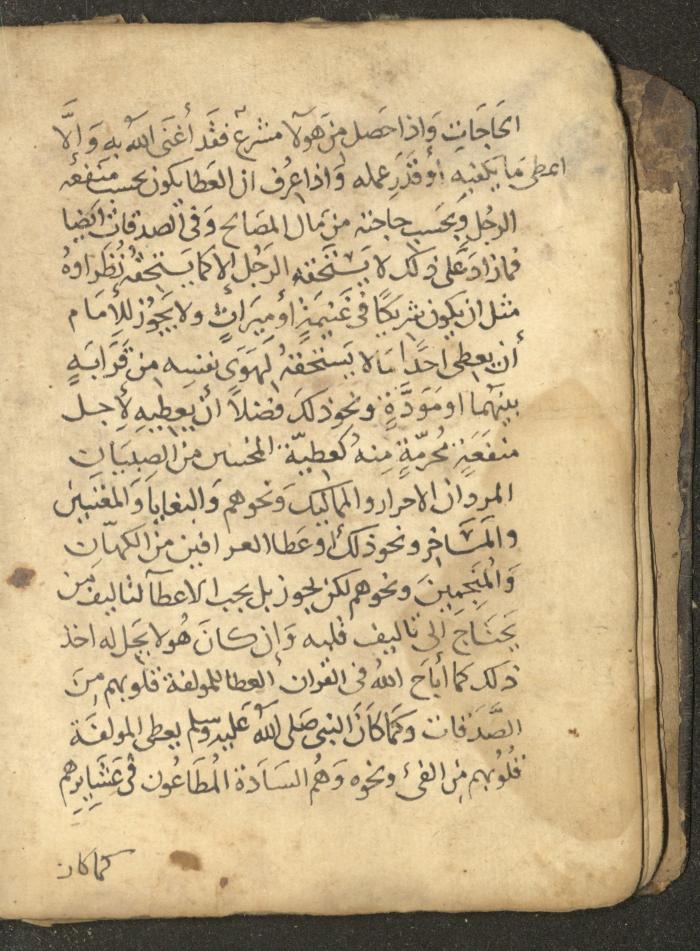 الحاجات واذا حصل من هولا متبرع فقد أغنى الله به وإلّا
اعطى ما يكفيه أو قدر عمله واذا عرف ان العطا يكون بحسب منفعة
الرجل وبحسب حاجته من مال المصالح وفي الصدقات ايضا
فما زاد على ذلك لا يستحقه الرجل إلا كما يستحقه نظراوه
مثل ان يكون شريكًا في غنيمةٍ أو ميراثٍ ولا يجوز للإمام
أن يعطي احدًا ما لا يستحقه لهوى نفسه من قرابةٍ
بينهما او مودّةٍ ونحو ذلك فضلاً أن يعطيه لأجل
منفعةٍ محرّمةٍ منه كعطيّة المخنثين من الصبيان
المردان الاحرار والمماليك ونحوهم والبغايا والمغنيين
والمساخر ونحو ذلك أو عطا العرافين من الكهّان
والمنجمين ونحوهم لكن يجوز بل يجب الاعطآ لتاليف من
يحتاج إلى تاليف قلبه وان كان هو لا يحل له اخذ
ذلك كما أباح الله في القران العطا للمولفة قلوبهم من
الصّدقات وكما كان النبي صلى الله عليه وسلم يعطي المولفة
قلُوبهم من الفئ ونحوه وهم السادة المُطاعُون في عشايرهم
كما كان